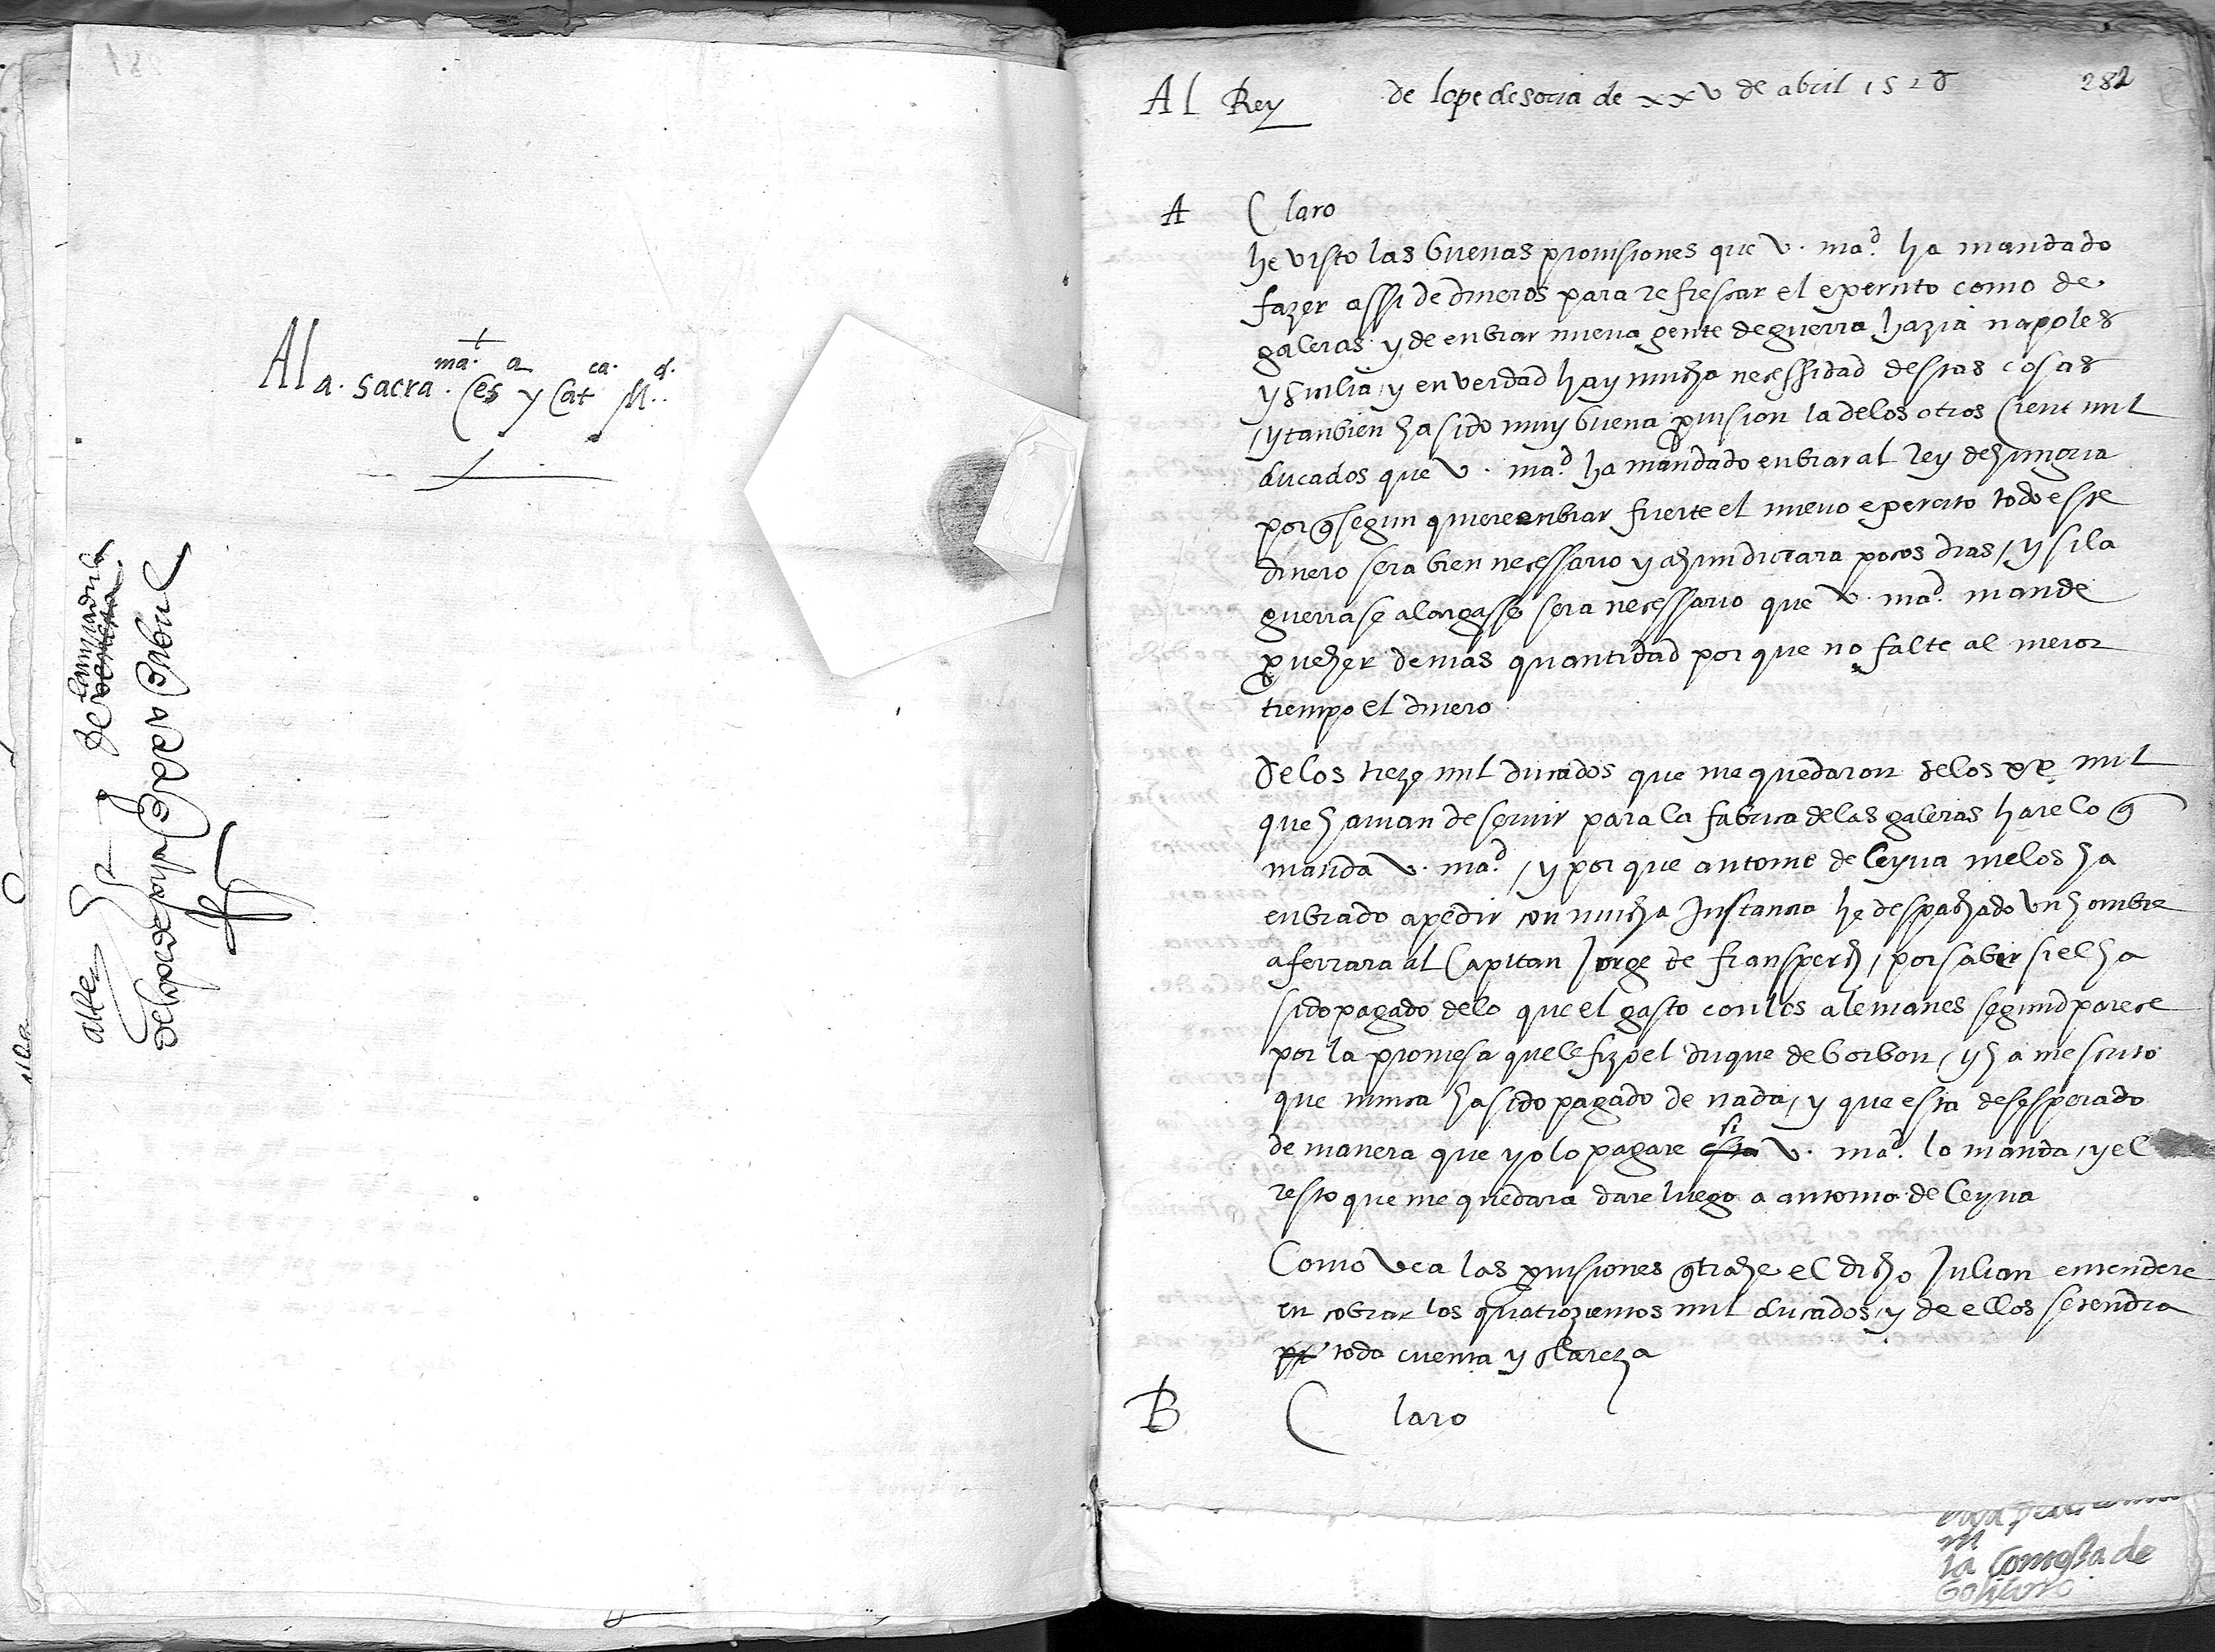 A la. Sacra. Ces.ma a y Cat.ca. M.d.
al Rey
de lope de soria de xxv de abril
Al Rey de lope de soria de xxv de abril 1528 282
A Claro
he visto las buenas prouisiones que v. mad. ha mandado
fazer assi de dineros para refrescar el exercito como de
galeras y de enbiar nueua gente de guerra hazia napoles
y sicilia / y en verdad hay mucha necessidad destas cosas
/ y tanbien ha sido muy buena puision la de los otros cient mil
ducados que v. mad. ha mandado enbiar al Rey de hungria
por q segun quiere enbiar fuerte el nueuo exercito todo este
dinero sera bien necessario y ahun durara pocos dias / y si la
guerra se alargasse sera necessario que v. mad. mande
pueher de mas quantidad por que no falte al meior
tiempo el dinero
De los treze mil ducados que me quedaron de los xx mil
que hauian de seruir para la fabrica de las galeras hare lo q
manda v. mad. / y por que antonio de leyua me los ha
enbiado a pedir con mucha Instancia he despachado vn hombre
a ferrara al Capitan Jorge de fransperch / por saber si el ha
sido pagado de lo que el gasto con los alemanes segund parece
por la promesa que le fizo el duque de borbon / y ha me scrito
que nunca ha sido pagado de nada / y que esta desesperado
de manera que yo lo pagare si v. mad. lo manda / y el
resto que me quedara dare luego a antonio de leyua
Como vea las puisiones q trahe el dicho Julian entendere
en cobrar los quatrozientos mil ducados / y de ellos se tendra
toda cuenta y clareza
B Claro
la Comosta de